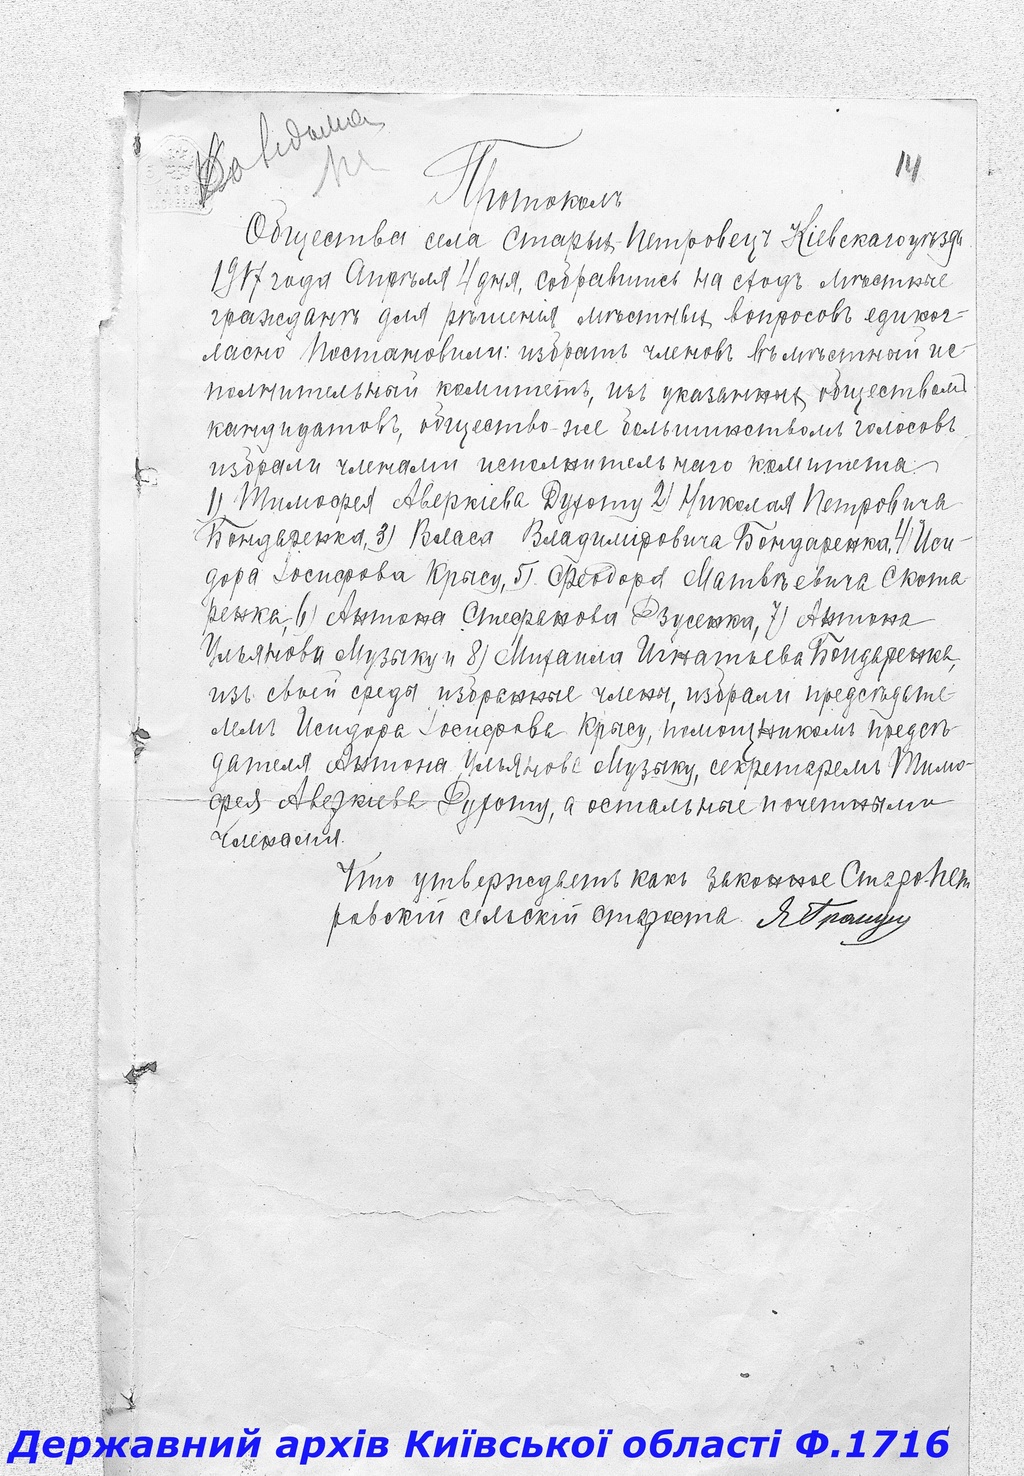 До відома
14
Протоколъ
Общества села Старых Петровецъ Кіевскаго уезда
1917 года Апрѣля 4 дня, собравшись на сходъ мѣстные
граждане для рѣшенія мѣстных вопросовъ единог-
ласно постановили: избрать членовъ въ мѣстный ис-
полнительный комитетъ, изъ указанных обществомъ
кандидатовъ, общество-же большинствомъ голосовъ
избрали членами исполнительнаго комитета
1) Тимофея Аверкіева Духоту 2) Николая Петровича
Бондаренка, 3) Власа Владиміровича Бондаренка, 4) Иси-
дора Іосифова Крысу, 5) Феодора Матвѣевича Скота
ренка, 6) Антона Стефанова Дзусенка, 7) Антона
Ульянова Музыку и 8) Михаила Игнатьева Бондаренка,
изъ своей среды избранные члены, избрали предсѣдате-
лемъ Исидора Іосифова Крысу, помощникомъ предсѣ-
дателя Антона Ульянова Музыку, секретаремъ Тимо-
фея Аверкіева Духоту, а остальные почетными
членами.
Что утверждаетъ какъ законное Старо-Пет
ровскій сельскій староста
Державний архів Київської області Ф.1716